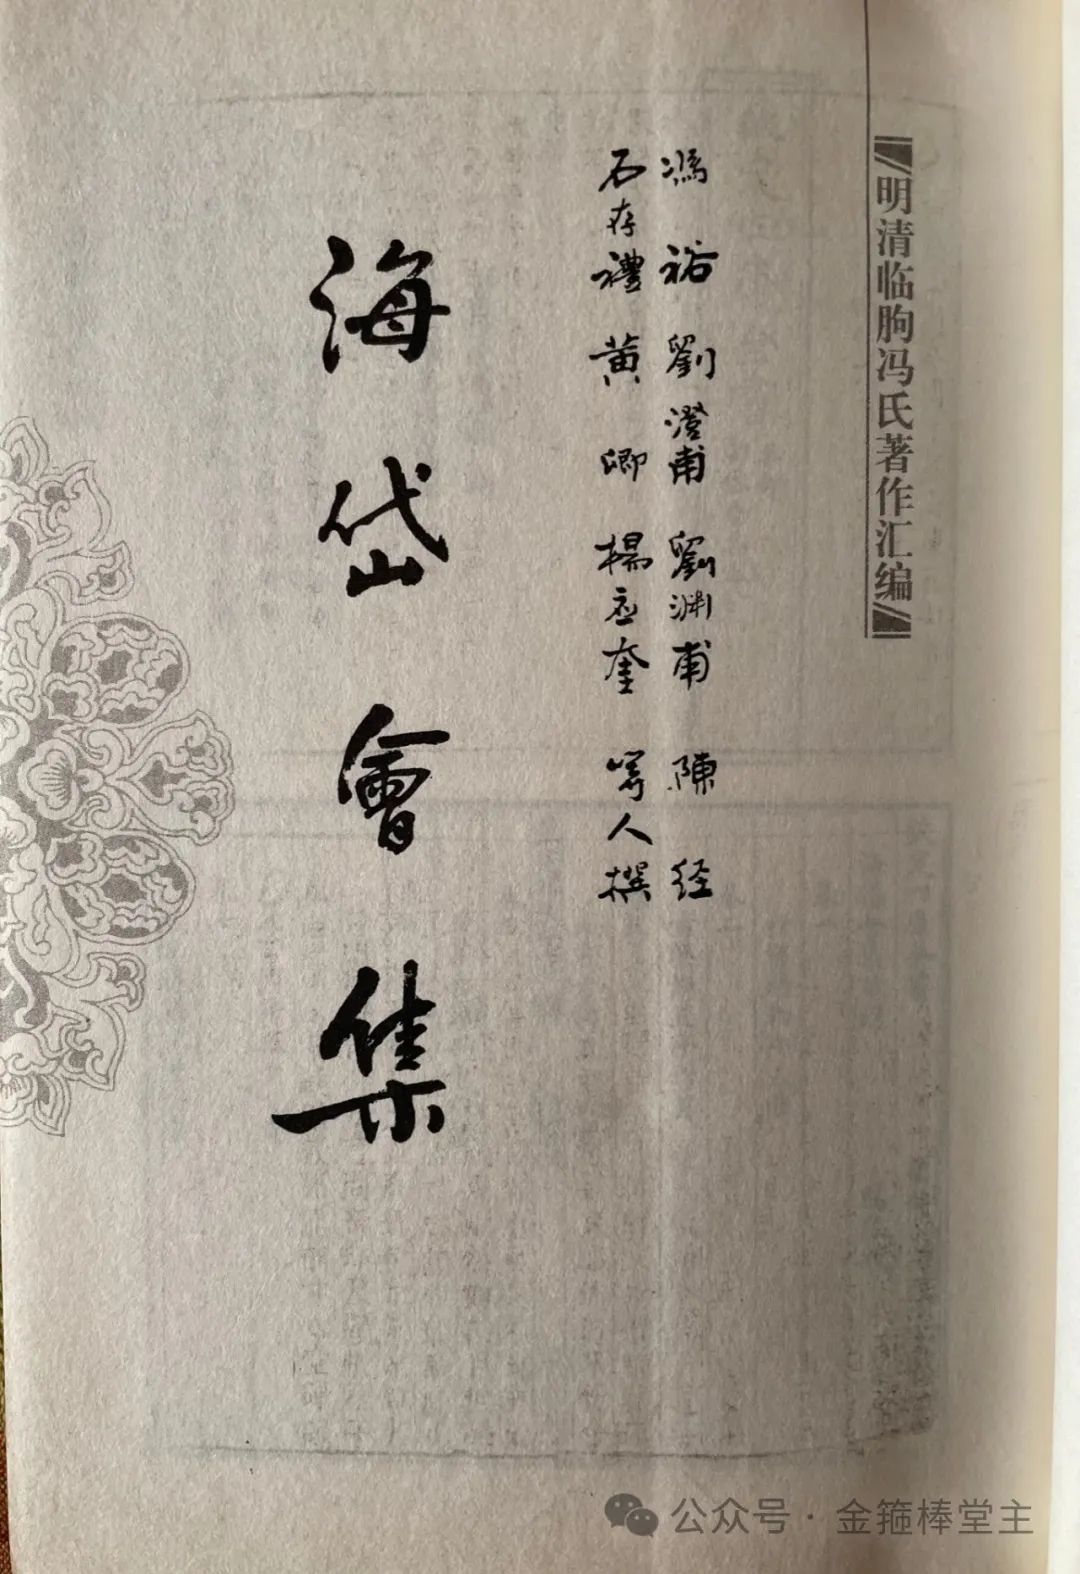 明清临朐冯氏著作汇编
馮裕 劉澄甫 劉淵甫 陳经
石存禮 黄卿 楊应奎 等人撰
海岱會集
公众号·金箍棒堂主